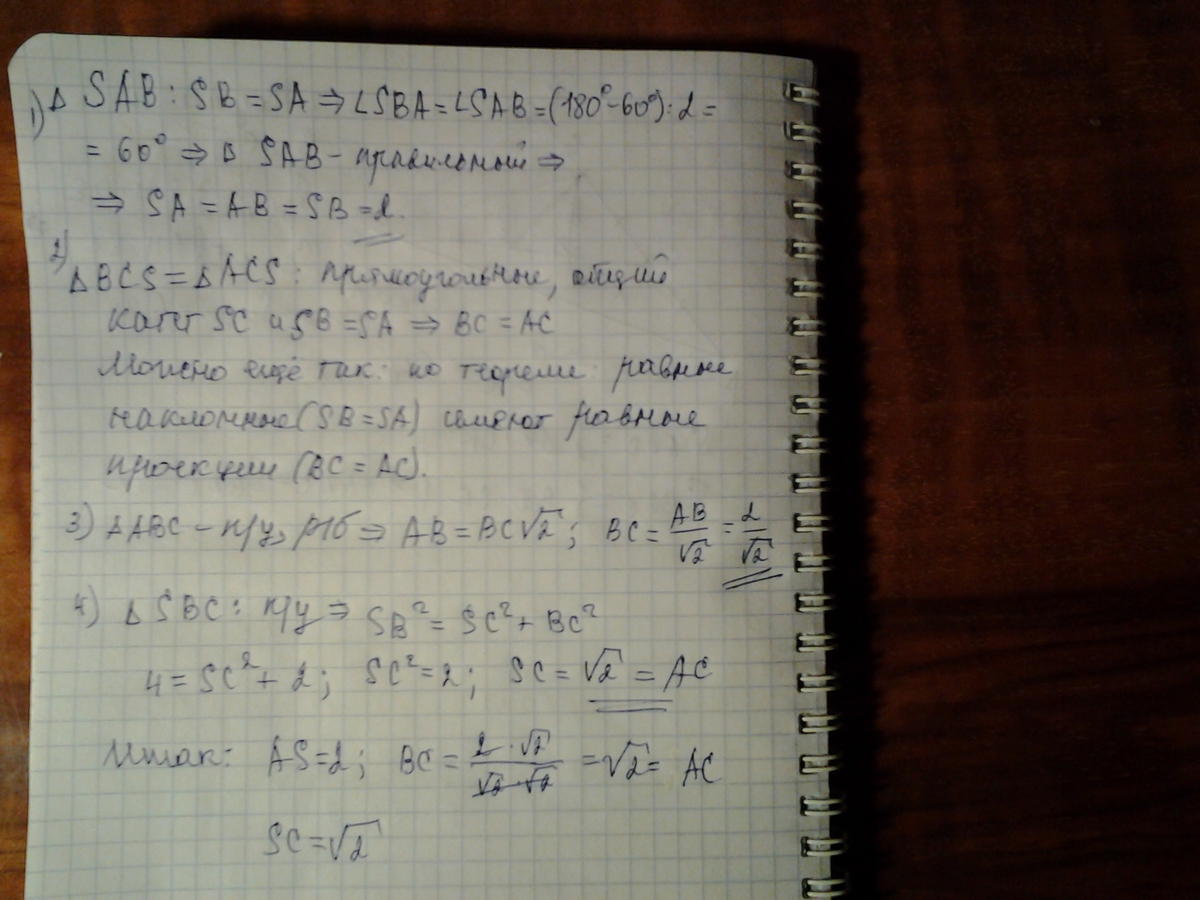 1) Δ SAB: SB = SA ⇒ ∠SBA = ∠SAB = (180° - 60°) : 2 =
= 60° ⇒ Δ SAB - правильный ⇒
⇒ SA = AB = SB = 2.
2) Δ BCS = Δ ACS: прямоугольные, общий
катет SC и SB = SA ⇒ BC = AC
Можно ещё так: по теореме: равные
наклонные (SB = SA) имеют равные
проекции (BC = AC).
3) Δ ABC - п/у, р/б ⇒ AB = BC√2; BC = AB/√2 = 2/√2
4) Δ SBC: п/у ⇒ SB² = SC² + BC²
4 = SC² + 2; SC² = 2; SC = √2 = AC
Итак: AS = 2; BC = 2·√2/√2·√2 = √2 = AC
SC = √2